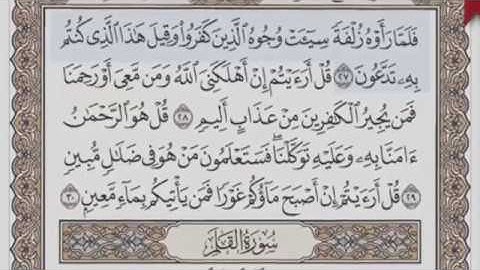 فَلَمَّا رَأَوْهُ زُلْفَةً سِيٓـَٔتْ وُجُوهُ ٱلَّذِينَ كَفَرُوا۟ وَقِيلَ هَٰذَا ٱلَّذِى كُنتُم
بِهِۦ تَدَّعُونَ ٢٧ قُلْ أَرَءَيْتُمْ إِنْ أَهْلَكَنِىَ ٱللَّهُ وَمَن مَّعِىَ أَوْ رَحِمَنَا
فَمَن يُجِيرُ ٱلْكَٰفِرِينَ مِنْ عَذَابٍ أَلِيمٍ ٢٨ قُلْ هُوَ ٱلرَّحْمَٰنُ
ءَامَنَّا بِهِۦ وَعَلَيْهِ تَوَكَّلْنَا ۖ فَسَتَعْلَمُونَ مَنْ هُوَ فِى ضَلَٰلٍ مُّبِينٍ
٢٩ قُلْ أَرَءَيْتُمْ إِنْ أَصْبَحَ مَآؤُكُمْ غَوْرًا فَمَن يَأْتِيكُم بِمَآءٍ مَّعِينٍۭ ٣٠
سُورَةُ ٱلْقَلَمِ